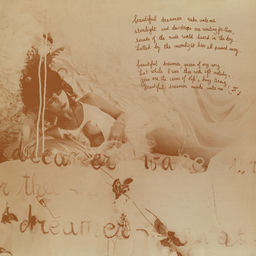 beautiful dreamer wake unto me
starlight and dewdrops are waiting for thee,
sounds of the rude world heard in the day
lulled by the moonlight have all passed away
beautiful dreamer queen of my song
list while I woo thee with soft melody.
gone are the cares of life's busy throng
beautiful dreamer awake unto me!
dreamer wa
the
dreamer